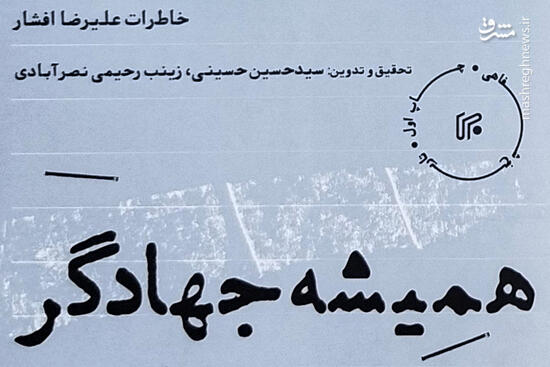 خاطرات علیرضا افشار
تحقیق و تدوین: سیدحسین حسینی، زینب رحیمی نصرآبادی
چاپ اول
همیشه جهادگر
مشرق
mashreghnews.ir